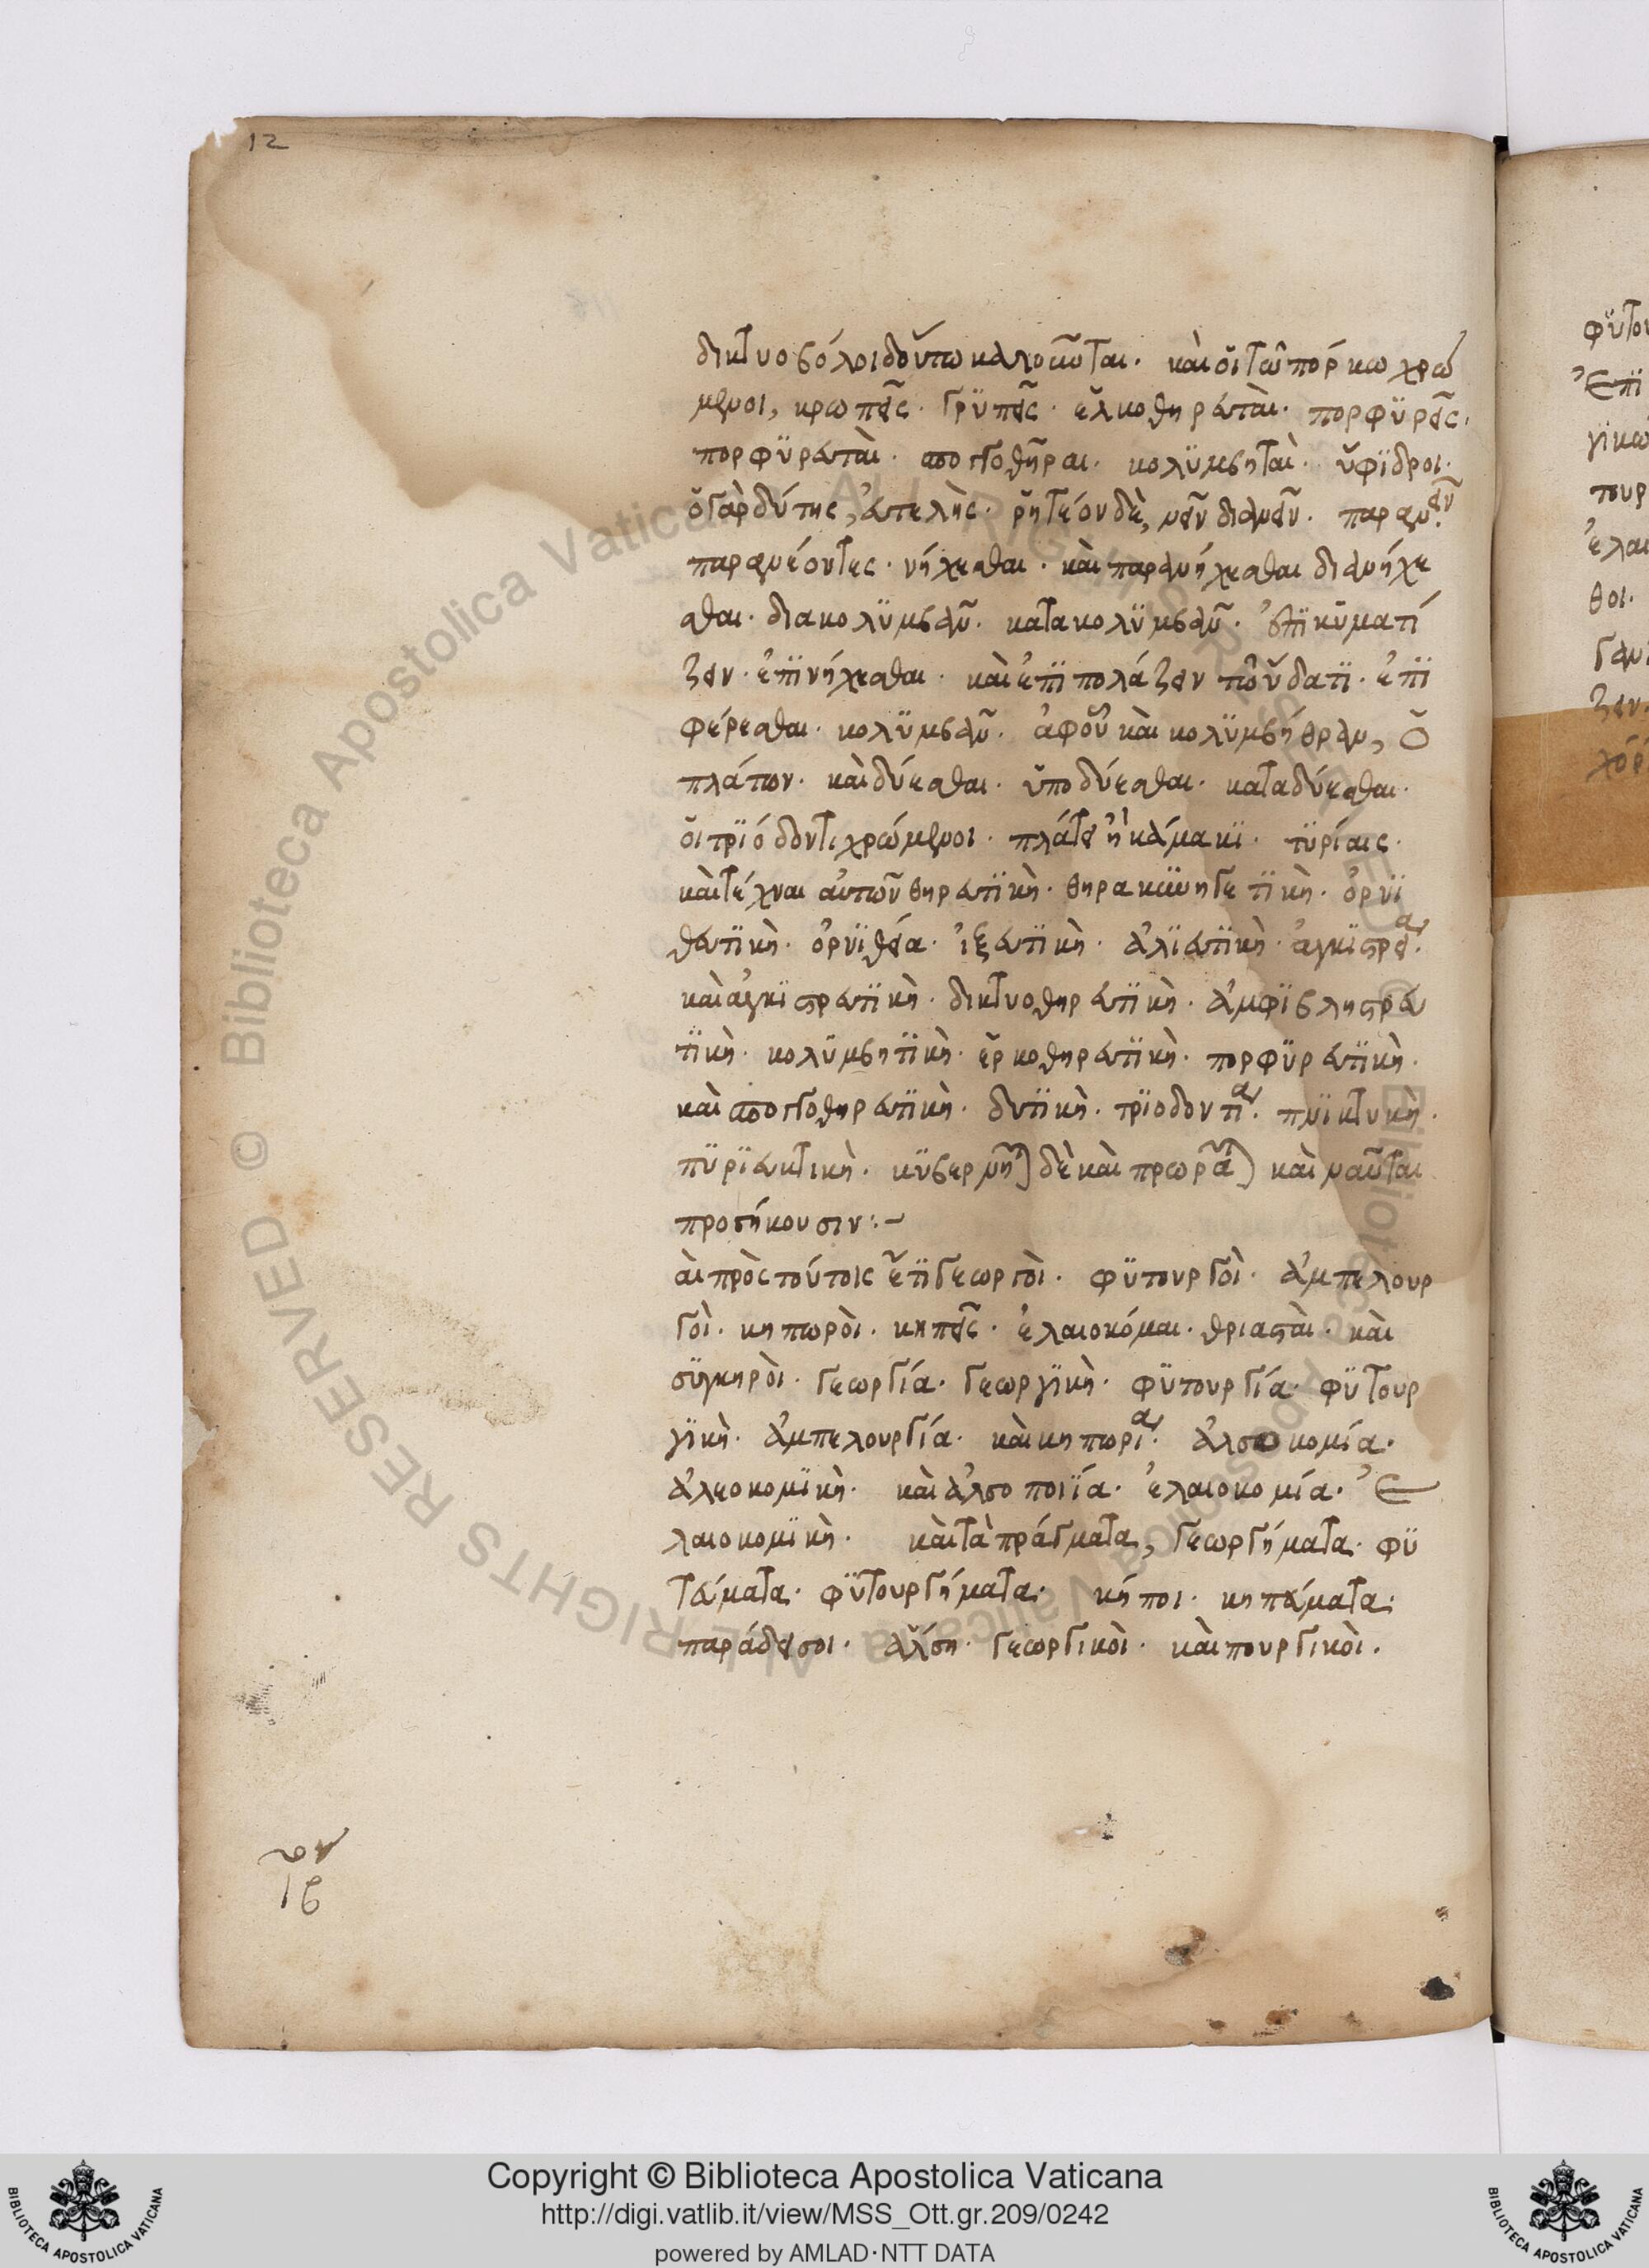 12
δικτυοβόλοι δ' οὕτω καλοῦνται. καὶ οἱ τῶ πόρκω χρώ
μενοι, κρωπεῖς. γρυπεῖς. ἑλκοθηρευταὶ. πορφυρεῖς.
πορφυρευταὶ. σπογγοθῆραι. κολυμβηταὶ. ὕφιδροι.
ὁ γὰρ δύτης, εὐτελὴς. ῥητέον δὲ, νεῖν διανεῖν. παρανεῖν.
παρανέοντες. νήχεσθαι. καὶ παρανήχεσθαι διανήχε
σθαι. διακολυμβᾶν. κατακολυμβᾶν. ἐπικυματί
ζειν. ἐπινήχεσθαι. καὶ ἐπιπολάζειν τῶ ὕδατι. ἐπι
φέρεσθαι. κολυμβᾶν. ἀφ' οὗ καὶ κολυμβήθραν, ὁ
πλάτων. καὶ δύεσθαι. ὑποδύεσθαι. καταδύεσθαι.
οἱ τριόδοντι χρώμενοι. πλάτει ἢ κάμακι. πυρίαις.
καὶ τέχναι αὐτῶν θηρευτικὴ. θηρακυνηγετικὴ. ὀρνι
θευτικὴ. ὀρνιθεία. ἰξευτικὴ. ἁλιευτικὴ. ἀγκιστρεία.
καὶ ἀγκιστρευτικὴ. δικτυοθηρευτικὴ. ἀμφιβληστρευ
τικὴ. κολυμβητικὴ. ἑρκοθηρευτικὴ. πορφυρευτικὴ.
καὶ σπογγοθηρευτικὴ. δυτικὴ. τριοδοντία. πνικτυκὴ.
πυριευκτικὴ. κυβερνῆται δὲ καὶ πρωρᾶται καὶ ναῦται
προσήκουσιν:-
αἱ πρὸς τούτοις ἔτι γεωργοὶ. φυτουργοὶ. ἀμπελουρ
γοὶ. κηπωροὶ. κηπεῖς. ἐλαιοκόμαι. θριασταὶ. καὶ
συγκηροὶ. γεωργία. γεωργικὴ. φυτουργία. φυτουρ
γικὴ. ἀμπελουργία. καὶ κηπωρία. ἀλσοκομία.
ἀλσοκομικὴ. καὶ ἀλσοποιία. ἐλαιοκομία. ἐ
λαιοκομικὴ. καὶ τὰ πράγματα, γεωργήματα. φυ
τεύματα. φυτουργήματα. κῆποι. κηπεύματα.
παράδεισοι. ἄλση. γεωργικοὶ. καὶ πουργικοὶ.
© Biblioteca Apostolica Vaticana ALL RIGHTS RESERVED
Copyright © Biblioteca Apostolica Vaticana
http://digi.vatlib.it/view/MSS_Ott.gr.209/0242
powered by AMLAD·NTT DATA
BIBLIOTECA APOSTOLICA VATICANA
BIBLIOTECA APOSTOLICA VATICANA